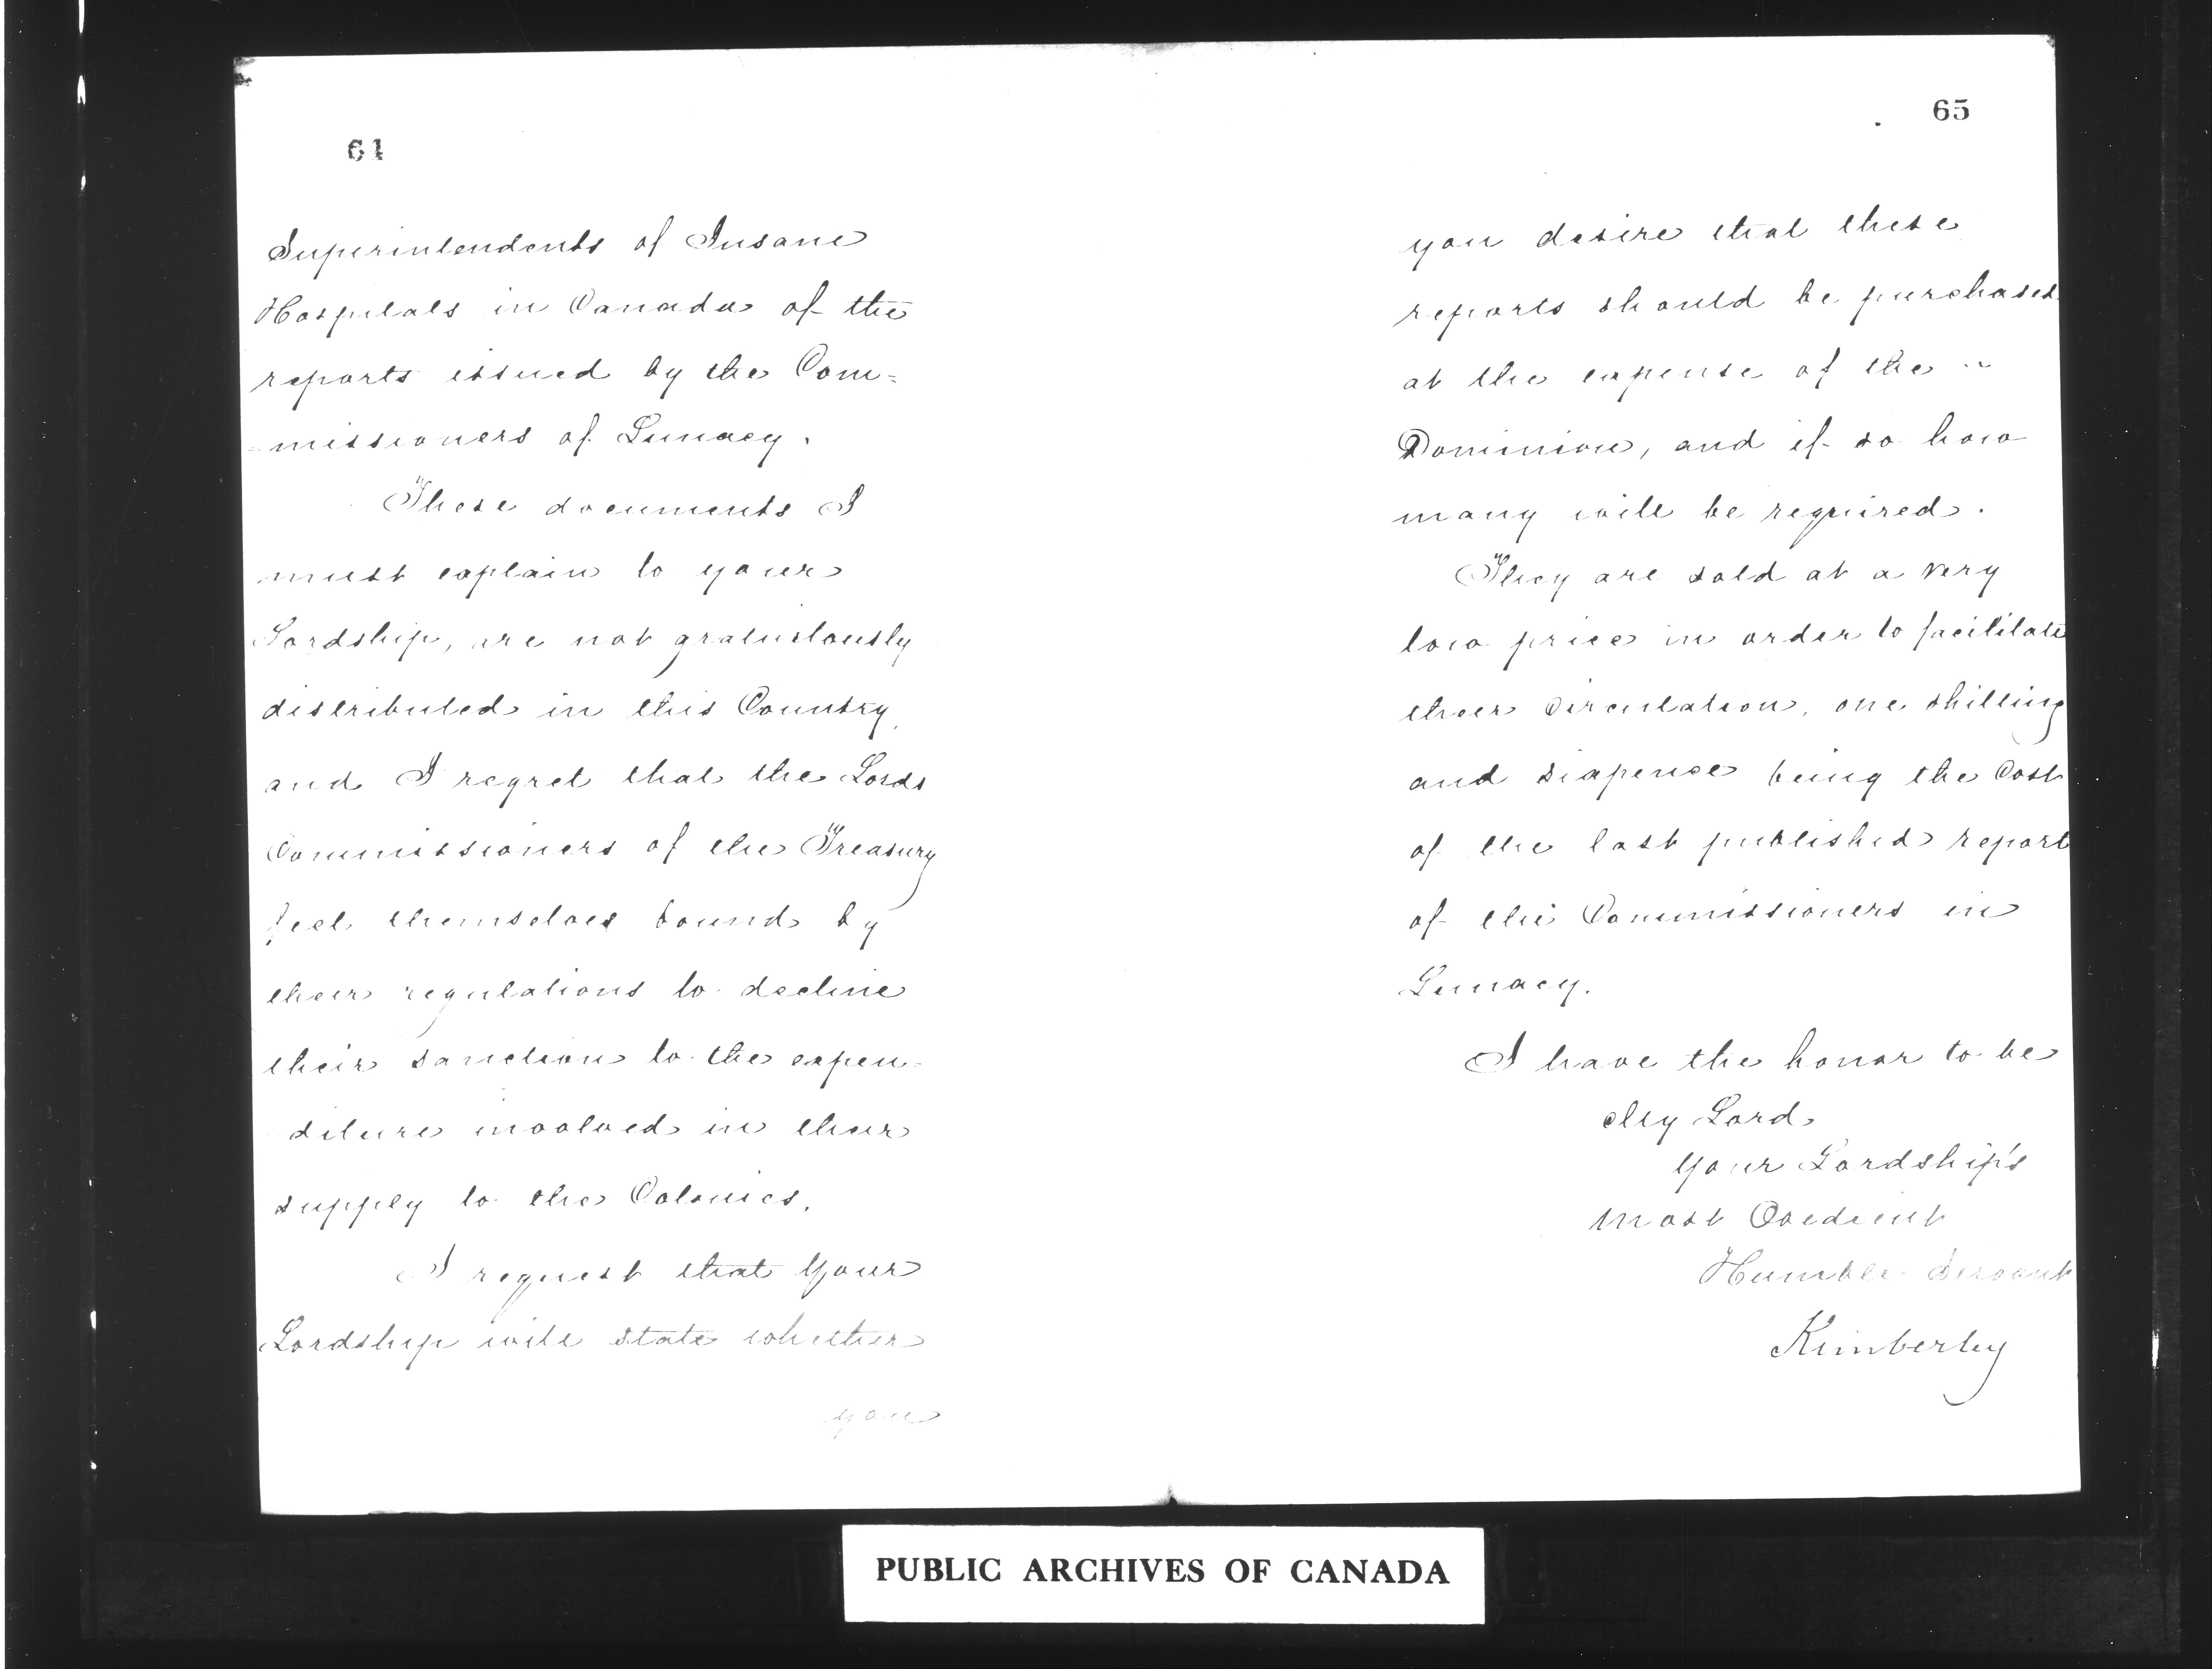 64
Superintendents of Insane
Hospitals in Canada of the
reports issued by the Com=
=missioners of Lunacy.
These documents I
must explain to your
Lordship, are not gratuitously
distributed in this Country,
and I regret that the Lords
Commissioners of the Treasury
feel themselves bound by
their regulations to decline
their sanction to the expen=
diture involved in their
supply to the Colonies.
I request that Your
Lordship will state whether
you
65
you desire that these
reports should be purchased
at the expense of the
Dominion, and if so how
many will be required.
They are sold at a very
low price in order to facilitate
their Circulation, one shilling
and sixpence being the Cost
of the last published report
of the Commissioners in
Lunacy.
I have the honor to be
My Lord
Your Lordship's
Most Obedient
Humble Servant
Kimberley
PUBLIC ARCHIVES OF CANADA